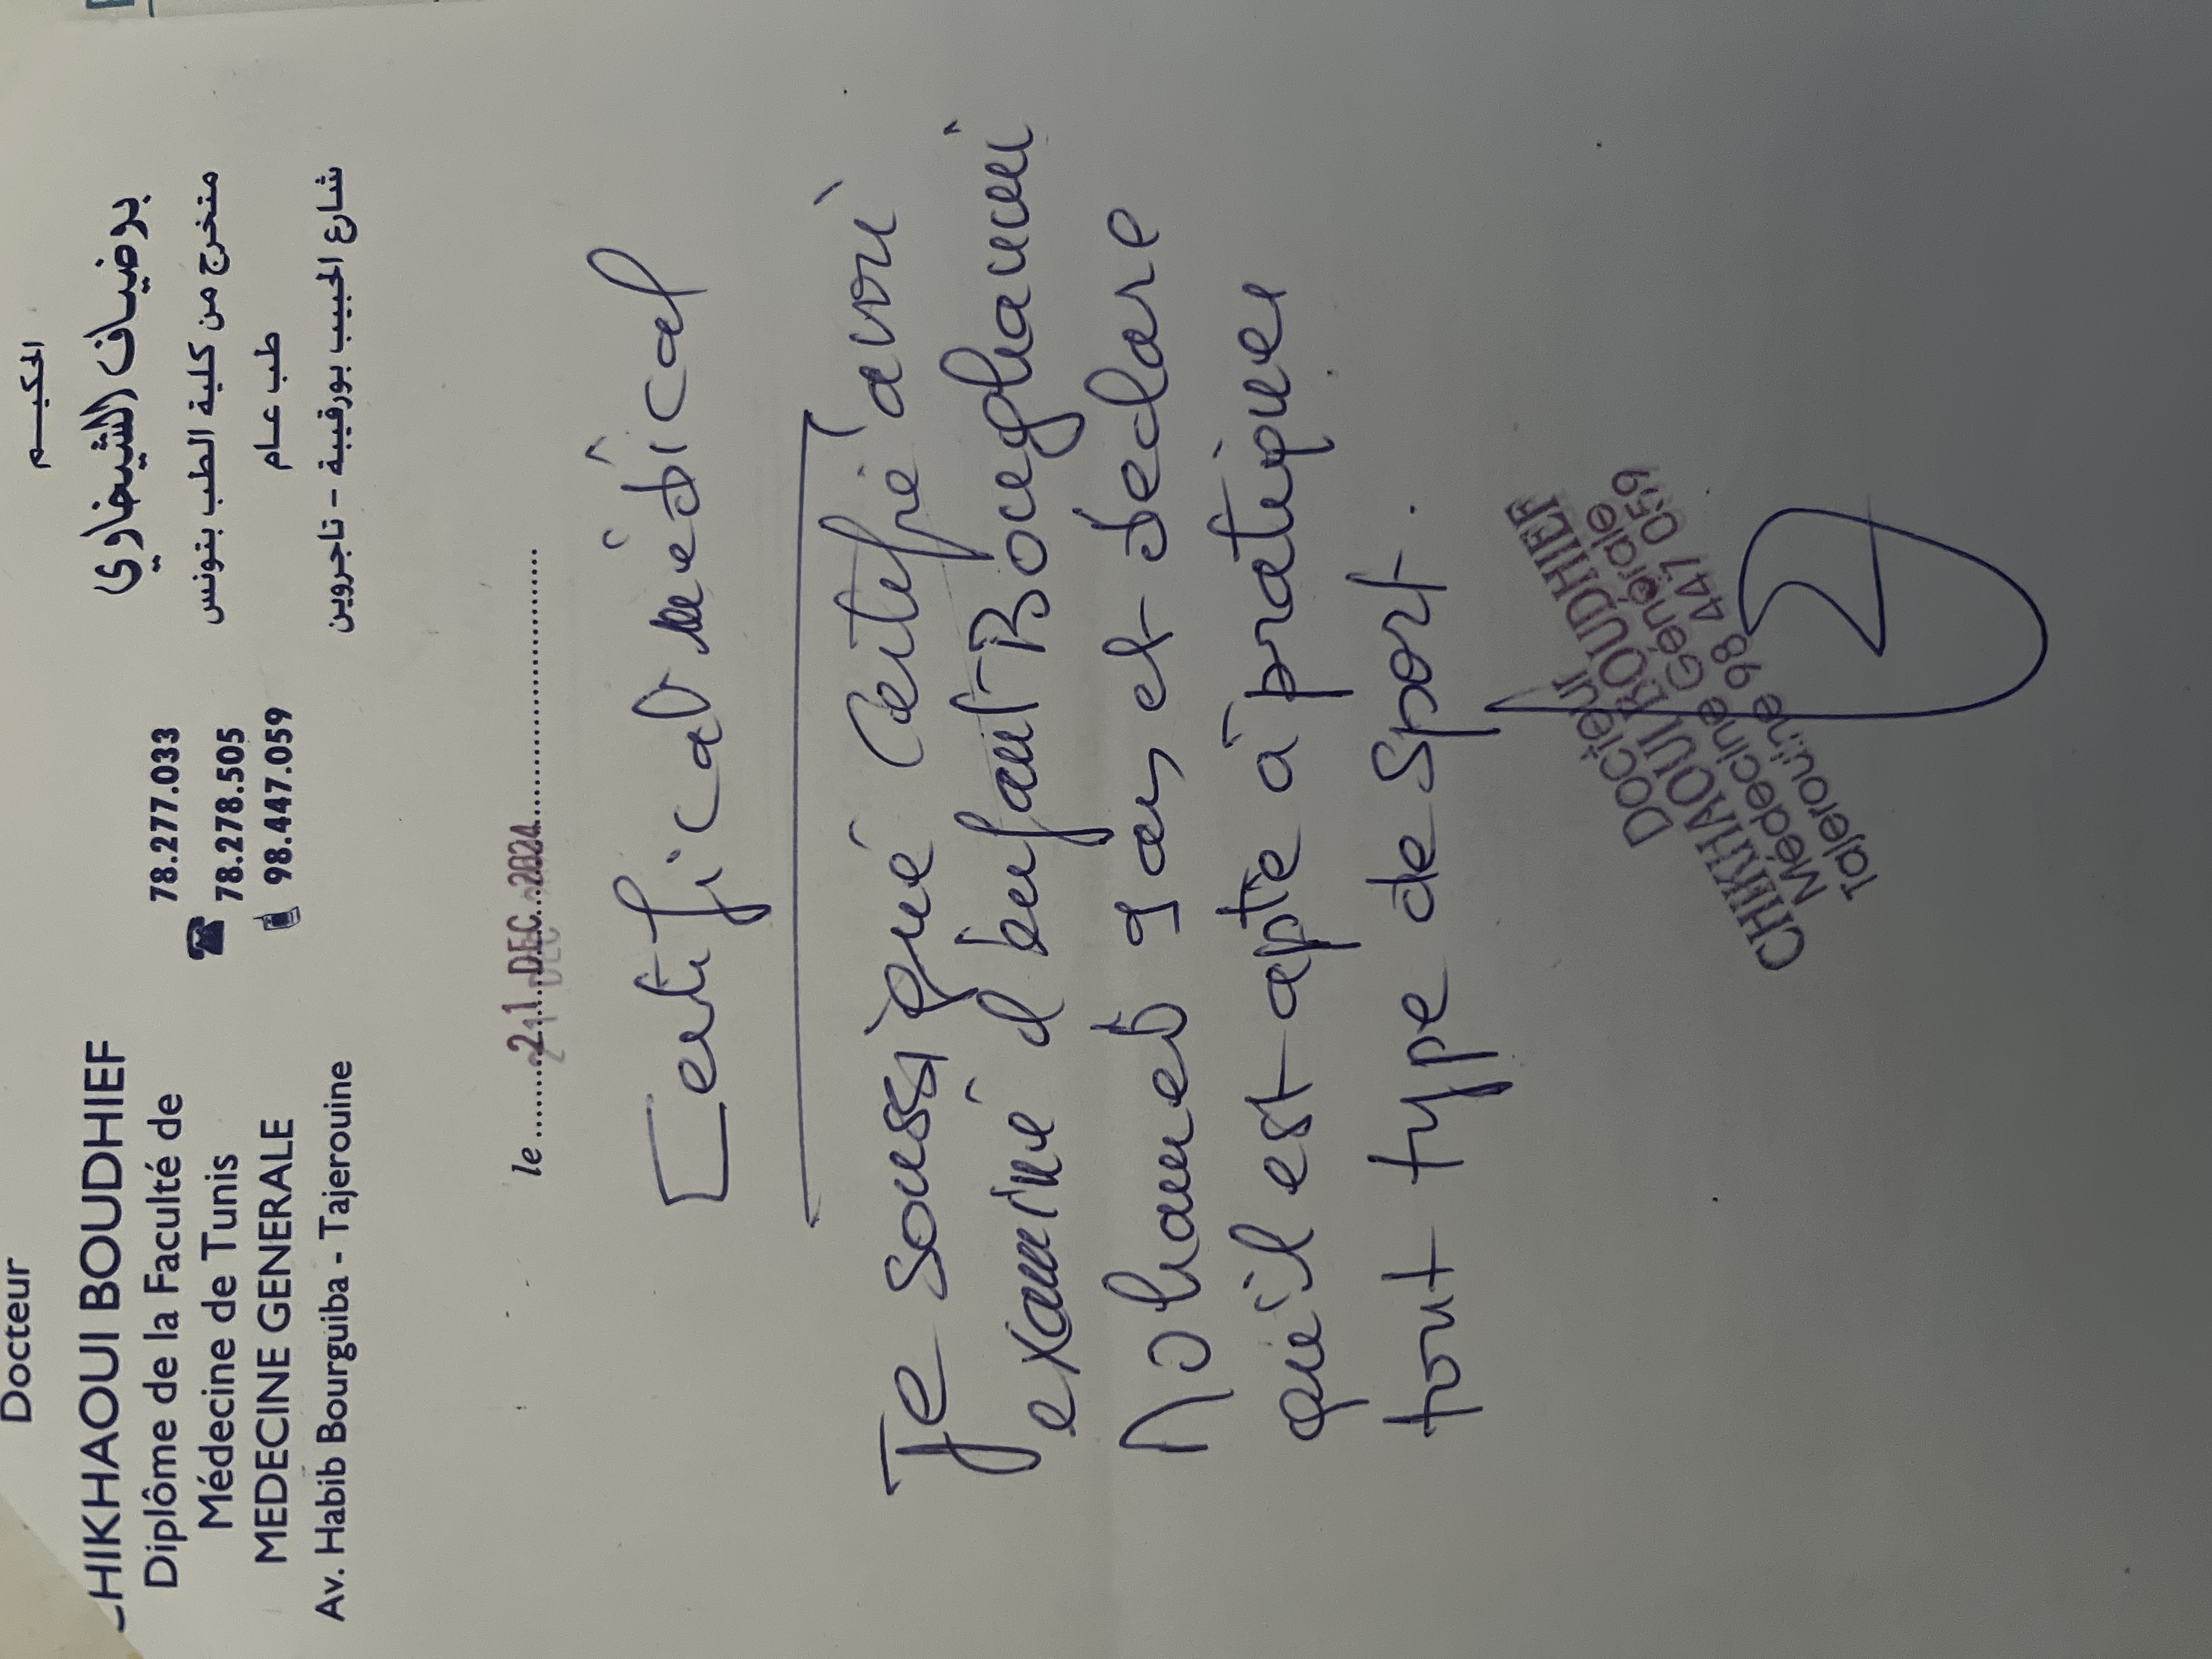 Docteur
CHIKHAOUI BOUDHIEF
Diplôme de la Faculté de
Médecine de Tunis
MEDECINE GENERALE
Av. Habib Bourguiba - Tajerouine
78.277.033
78.278.505
98.447.059
الحكيـــم
بوضيـاف الشيخاوي
متخرج من كلية الطب بتونس
طب عـام
شارع الحبيب بورقيبة - تاجروين
le ........21.DEC.2024........
Certificat médical
Je soussigné Certifie avoir
examiné l'enfant Boughanmi
Mohamed 9 ans et declare
qu'il est apte à pratiquer
tout type de sport.
Docteur
CHIKHAOUI BOUDHIEF
Médecine Générale
Tajerouine 98 447 059